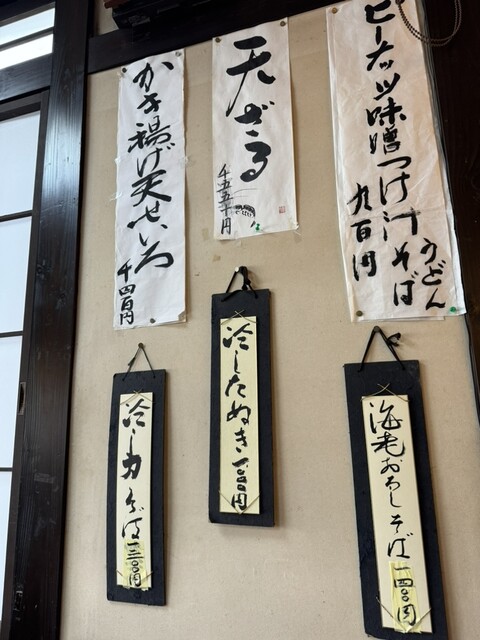 ピーナッツ味噌つけ汁そば
うどん
九百円
天ざる
千五百五十円
かき揚げ天せいろ
千四百円
海老おろしそば 一四〇〇円
冷したぬき 一〇〇〇円
冷し力そば 一三〇〇円